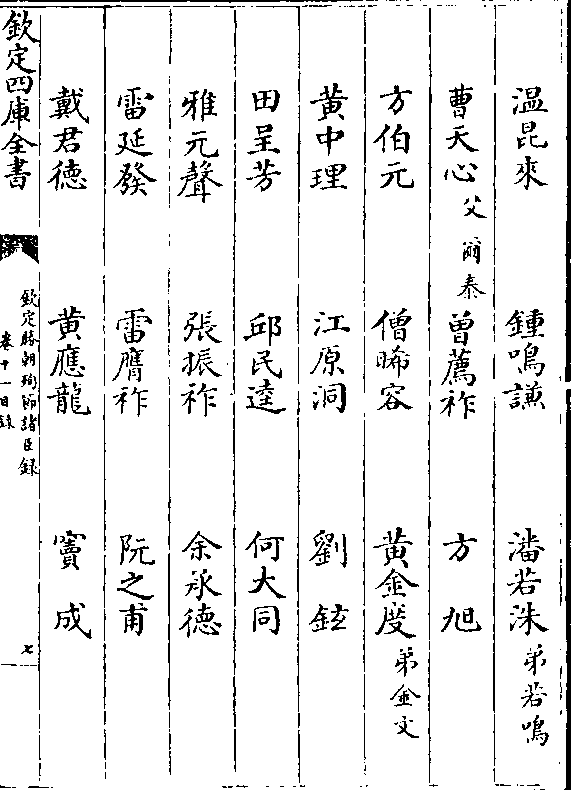 温昆來 鍾鳴謙 潘若洙弟若鳴
曹天心父爾泰 曾薦祚 方旭
方伯元 僧晞容 黄金度弟金文
黄中理 江原洞 劉鉉
田呈芳 邱民逵 何大同
雅元聲 張振祚 余承德
雷延發 雷膺祚 阮之甫
戴君德 黄應龍 竇成
欽定四庫全書
欽定勝朝殉節諸臣録
卷十一目録
七